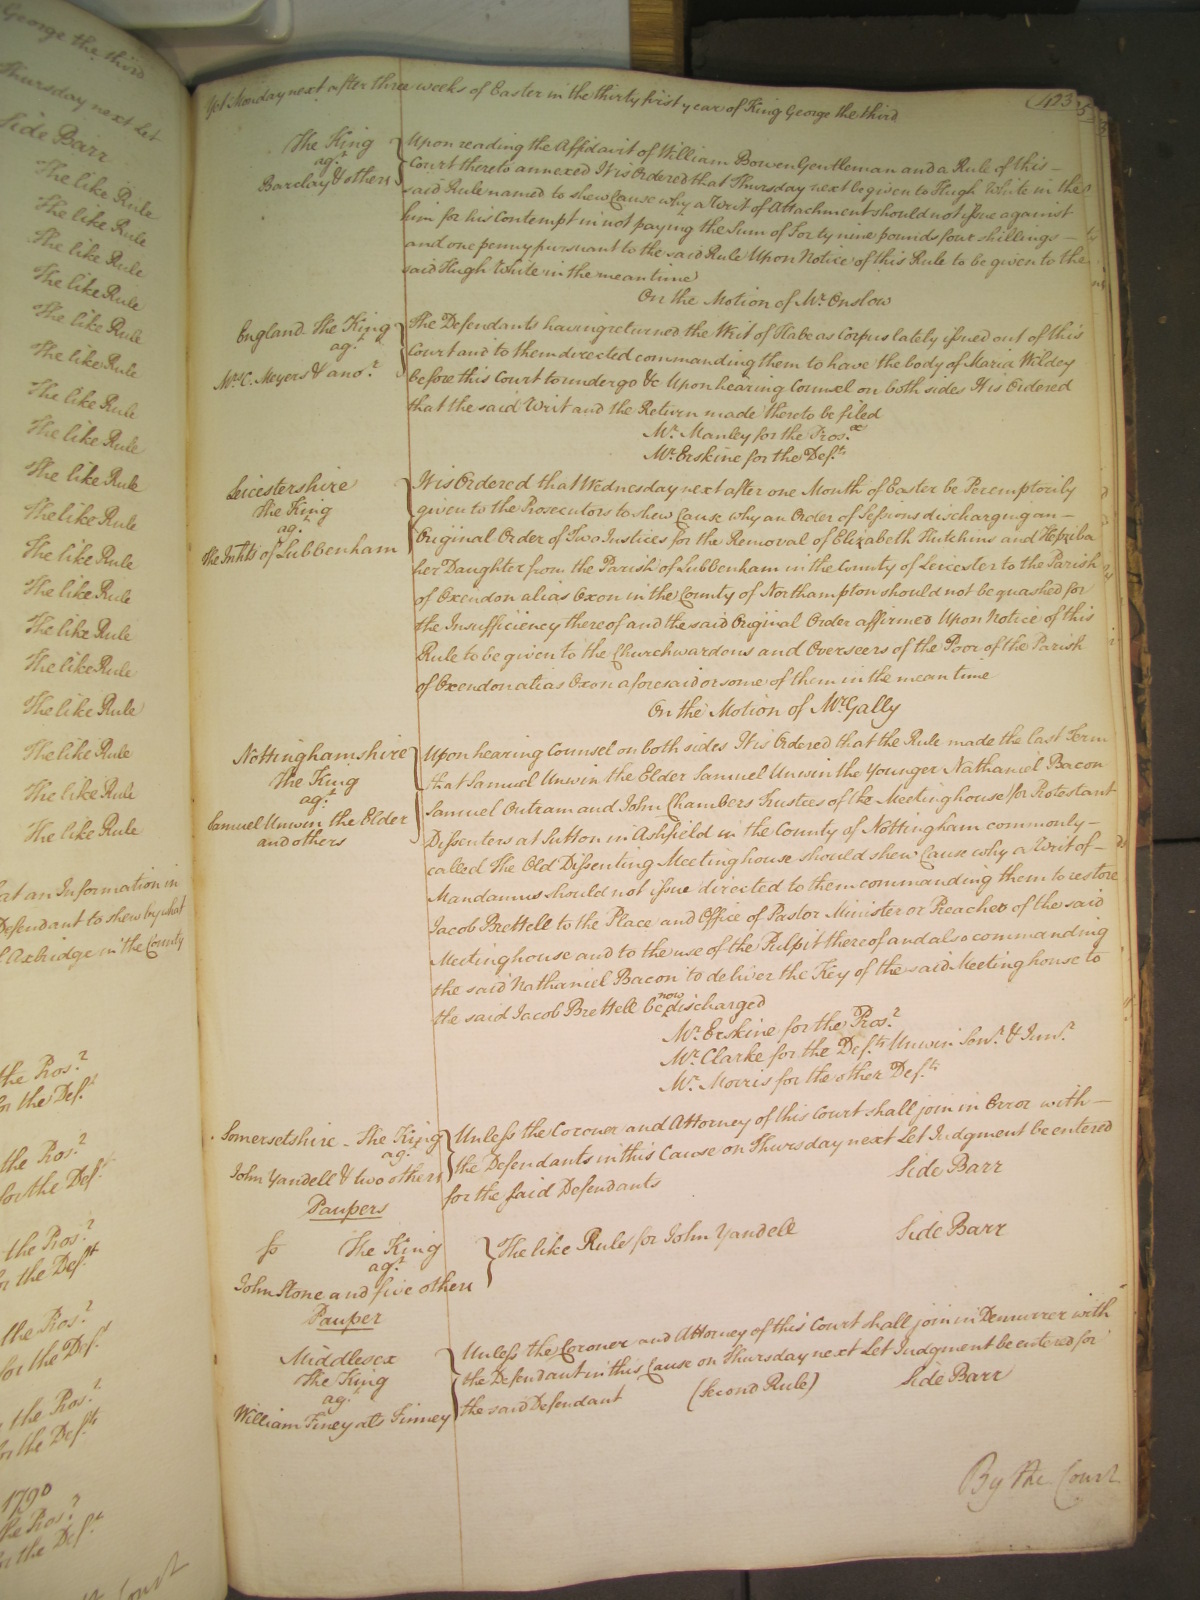 George the third
Thursday next Let
Side Barr
The like Rule
The like Rule
The like Rule
The like Rule
The like Rule
The like Rule
The like Rule
The like Rule
The like Rule
The like Rule
The like Rule
The like Rule
The like Rule
The like Rule
The like Rule
The like Rule
The like Rule
The like Rule
at an Information in
Defendant to shew by what
Axbridge in the County
the Pros.r
for the Def.t
the Pros.r
for the Def.t
the Pros.r
for the Def.t
the Pros.r
for the Def.t
the Pros.r
for the Def.ts
1790
the Pros.r
for the Def.t
Court
Yet Monday next after three weeks of Easter in the thirty first year of King George the third
423
The King
ag.t
Barclay & others
Upon reading the Affidavit of William Bowen Gentleman and a Rule of this
Court thereto annexed It is Ordered that Thursday next be given to Hugh White in the
said Rule named to shew Cause why a Writ of Attachment should not issue against
him for his Contempt in not paying the Sum of Forty nine pounds four shillings
and one penny pursuant to the said Rule Upon Notice of this Rule to be given to the
said Hugh White in the mean time
On the Motion of Mr. Onslow
England The King
ag.t
Mr. C. Meyers & ano.r
The Defendants having returned the Writ of Habeas Corpus lately issued out of this
Court and to them directed commanding them to have the body of Maria Wildey
before this Court to undergo &c Upon hearing Counsel on both sides It is Ordered
that the said Writ and the Return made thereto be filed
Mr. Manley for the Pros.ox
Mr. Erskine for the Def.ts
Leicestershire
The King
ag.t
The Inhts of Lubbenham
It is Ordered that Wednesday next after one Month of Easter be Peremptorily
given to the Prosecutors to shew Cause why an Order of Sessions discharging an
Original Order of Two Justices for the Removal of Elizabeth Hutchins and Hepziba
her Daughter from the Parish of Lubbenham in the County of Leicester to the Parish
of Oxendon alias Oxon in the County of Northampton should not be quashed for
the Insufficiency thereof and the said Original Order affirmed Upon Notice of this
Rule to be given to the Churchwardens and Overseers of the Poor of the Parish
of Oxendon alias Oxon aforesaid or some of them in the mean time
On the Motion of Mr. Gally
Nottinghamshire
The King
ag.t
Samuel Unwin the Elder
and others
Upon hearing Counsel on both sides It is Ordered that the Rule made the last Term
that Samuel Unwin the Elder Samuel Unwin the Younger Nathaniel Bacon
Samuel Outram and John Chambers Trustees of the Meetinghouse for Protestant
Dissenters at Sutton in Ashfield in the County of Nottingham commonly
called The Old Dissenting Meetinghouse should shew Cause why a Writ of
Mandamus should not issue directed to them commanding them to restore
Jacob Brettell to the Place and Office of Pastor Minister or Preacher of the said
Meetinghouse and to the use of the Pulpit thereof and also commanding
the said Nathaniel Bacon to deliver the Key of the said Meetinghouse to
the said Jacob Brettell be now discharged
Mr. Erskine for the Pros.r
Mr. Clarke for the Def.ts Unwin Sen.r & Jun.r
Mr. Morris for the other Def.ts
Somersetshire The King
ag.t
John Yandell & two others
Paupers
Unless the Coroner and Attorney of this Court shall join in Error with
the Defendants in this Cause on Thursday next Let Judgment be entered
for the said Defendants
Side Barr
ss The King
ag.t
John Stone and five others
Pauper
The like Rule for John Yandell
Side Barr
Middlesex
The King
ag.t
William Finey als Finney
Unless the Coroner and Attorney of this Court shall join in Demurrer with
the Defendant in this Cause on Thursday next Let Judgment be entered for
the said Defendant (Second Rule) Side Barr
By the Court